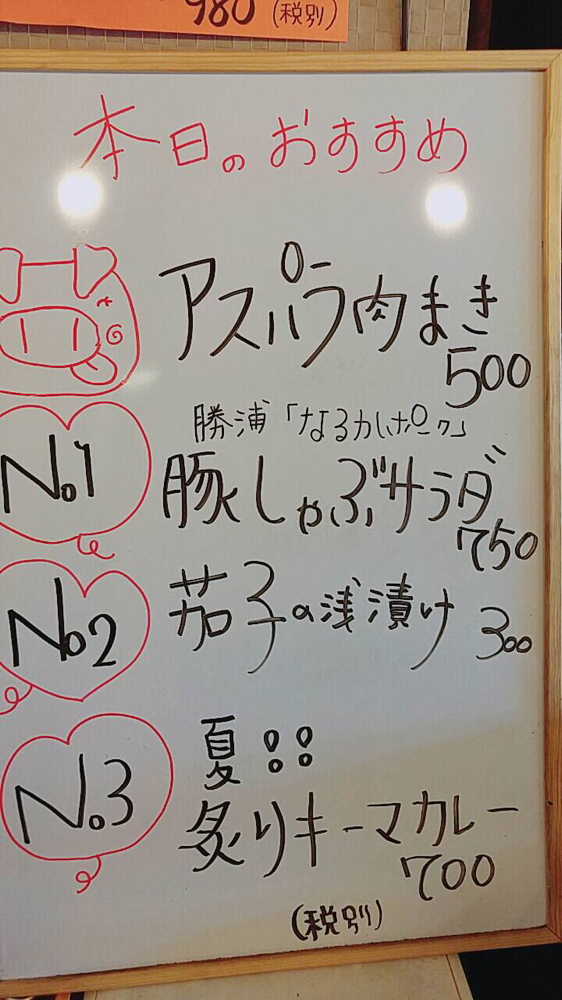 980 (税別)
本日のおすすめ
アスパラ肉まき
500
勝浦「なるかぽーク」
No.1
豚しゃぶサラダ
750
No2
茄子の浅漬け 300
夏!!
No.3
炙りキーマカレー
700
(税別)